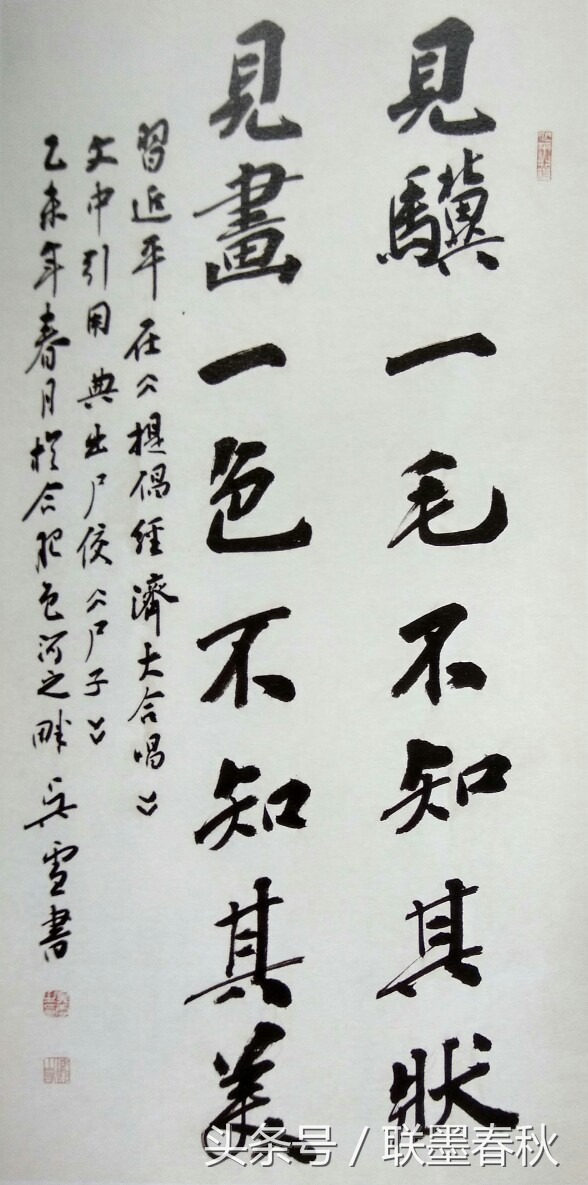 見驥一毛不知其狀
見畫一色不知其美
習近平在《提倡經濟大合唱》
文中引用典出尸佼《尸子》
乙未年春月於合肥包河之畔 吳雪書
头条号 / 联墨春秋